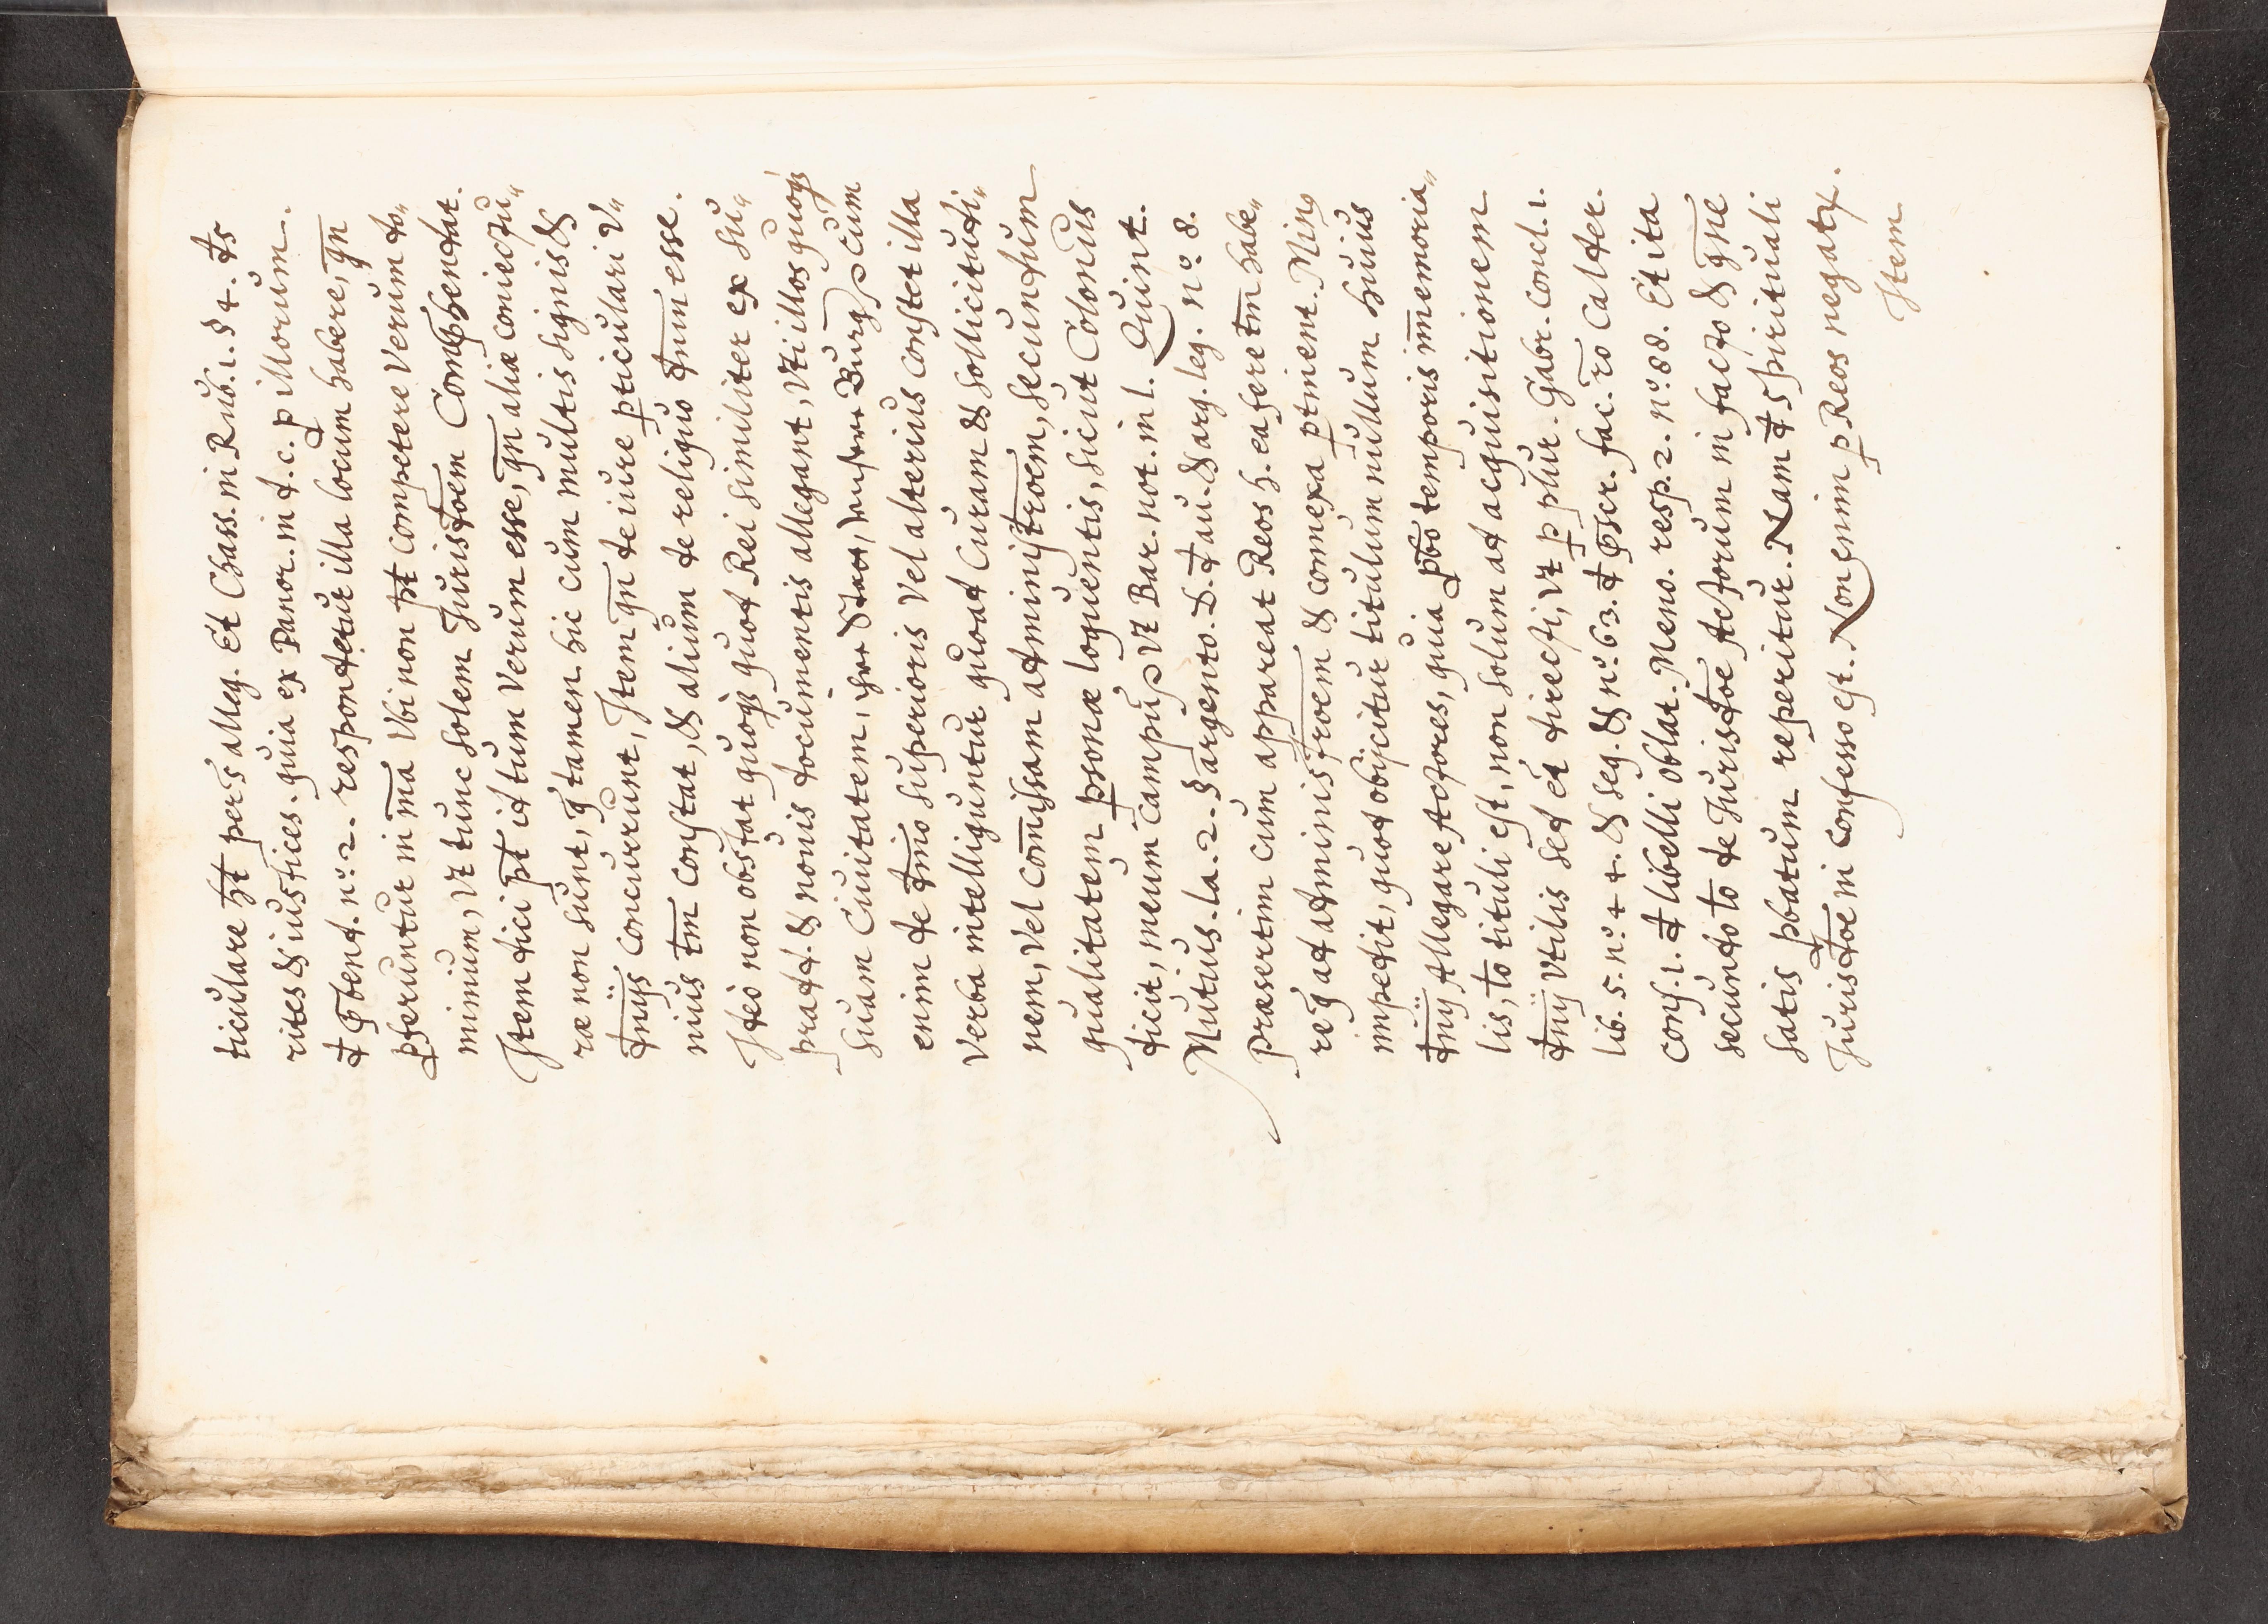 ticulare ht̄ per s̄ alleg. Et Chass. in Rub. 1. § 4. ds
rites & iustices. quia ex Panor. in d. c. p illorum.
d p̄bend. nº. 2. respondetur illa locum habere, qn̄
pferuntur in mā Vbi non pt̄ competere Verum do„
minium, Vt tunc solem Jurisdoēm Comp̄hendat.
Item dici pt̄ id tum Verum esse, qn̄ aliæ coniectu„
ræ non sunt, q̄ tamen hic cum multis signis &
dn̄ijs concurrunt, Item qn̄ de iure pticulari V„
nius tm̄ constat, & alium de reliquo dnūm esse.
Ideò non obstat quoq̢ quod Rei similiter ex su„
prad. & nouis documentis allegant, Vti illos quoq̢
suam Ciuitatem, ihre Statt, unsere Burg, cum
enim de dn̄io superioris Vel alterius constet illa
Verba intelliguntur quoad Curam & sollicitudi„
nem, Vel com̄issam administroēm, secundum
qualitatem psonæ loquentis, sicut Colonus
dicit, meum campum, Vt Bar. not. in l. Quint.
Mutius. la. 2. § argento. D. d au. & arg. leg. nº. 8.
Præsertim cum appareat Reos h. ea fere tm̄ habe„
re q̄ ad administroēm & connexa ptinent. Minus
impedit, quod obijcitur titulum nullum huius
dn̄ij Allegare Actores, quia pbō temporis im̄emoria„
lis, lō tituli est, non solum ad acquisitionem
dn̄ij Vtilis sed et directi, Vt p plur. Gabr. concl. 1.
lib. 5. nº. 4. & seq. & nº. 63. d p̄scr. fac. rō Calder.
cons. 1. d libelli oblat. Meno. resp. 2. nº. 88. Et ita
secundo lō de Jurisdoē Actorum in facto & gn̄e
satis pbatum reperitur. Nam d spirituali
Jurisdoē in Confesso est. Non enim p Reos negatr.
Item